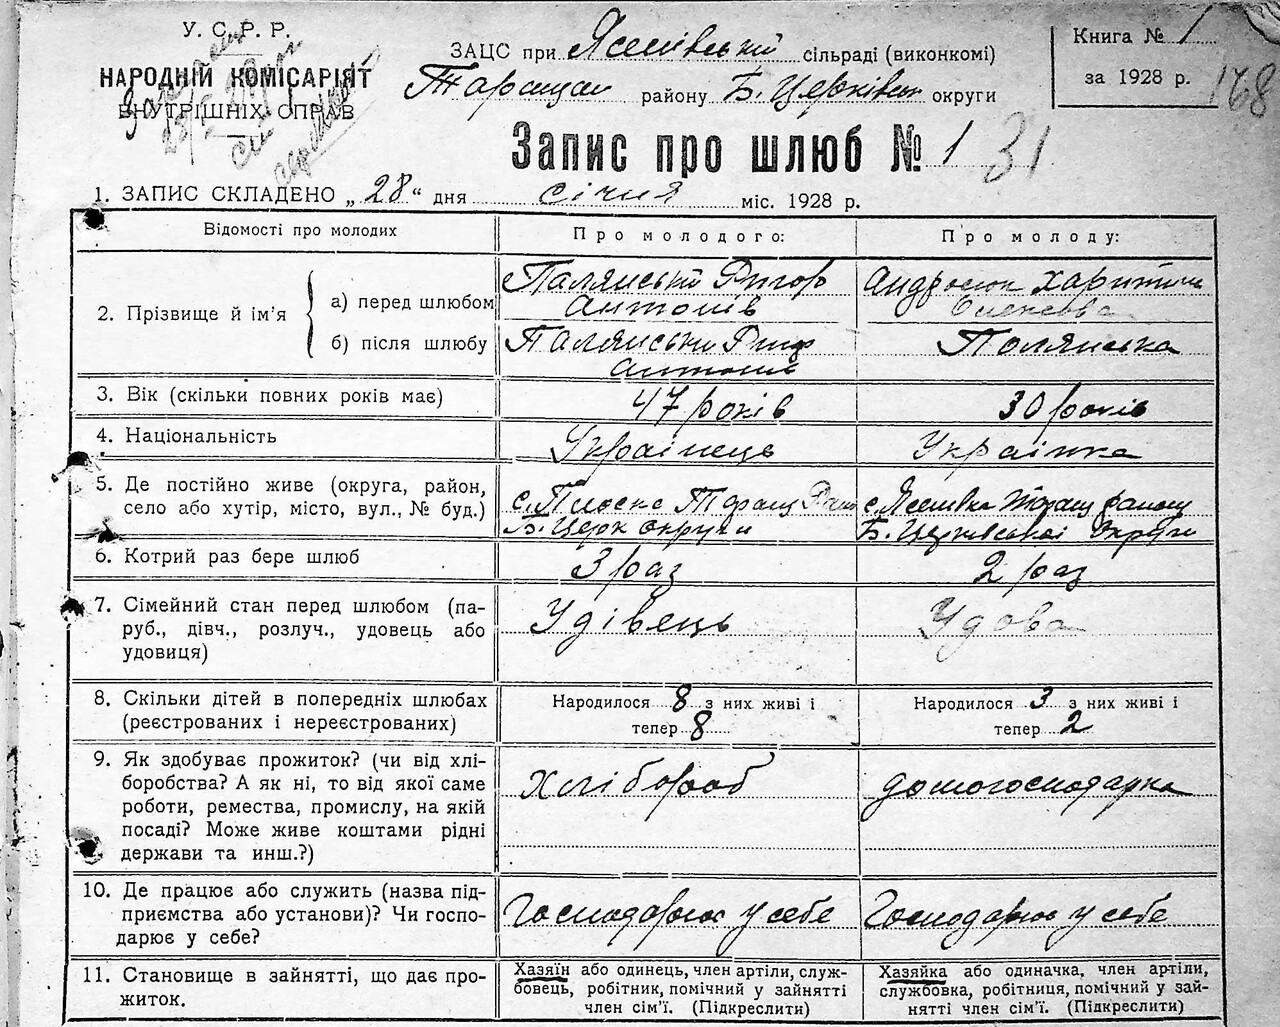 У. С. Р. Р.
НАРОДНІЙ КОМІСАРІЯТ
ВНУТРІШНІХ СПРАВ
ЗАЦС при Ясенівській сільраді (виконкомі)
Таращан району Б. Церківськ округи
Книга № 1
за 1928 р. 168
Запис про шлюб № 1 31
1. ЗАПИС СКЛАДЕНО „28“ дня січня міс. 1928 р.
Відомості про молодих
Про молодого:
Про молоду:
2. Прізвище й ім'я
а) перед шлюбом
Палянський Григор
Антонів
Андросюк Харитина
б) після шлюбу
Палянський Григ
Антонів
Полянська
3. Вік (скільки повних років має)
47 років
30 років
4. Національність
Українець
Українка
5. Де постійно живе (округа, район,
село або хутір, місто, вул., № буд.)
с. Таращ
Б. Церк округи
с. Ясенівка Таращ району
Б. Церківської Округи
6. Котрий раз бере шлюб
3 раз
2 раз
7. Сімейний стан перед шлюбом (па-
руб., дівч., розлуч., удовець або
удовиця)
Удівець
Удова
8. Скільки дітей в попередніх шлюбах
(реєстрованих і нереєстрованих)
Народилося 8 з них живі і
тепер 8
Народилося 3 з них живі і
тепер 2
9. Як здобуває прожиток? (чи від хлі-
боробства? А як ні, то від якої саме
роботи, ремества, промислу, на якій
посаді? Може живе коштами рідні
держави та инш.?)
Хлібороб
домогосподарка
10. Де працює або служить (назва під-
приємства або установи)? Чи госпо-
дарює у себе?
Господарює у себе
Господарює у себе
11. Становище в зайнятті, що дає про-
житок.
Хазяїн або одинець, член артіли, служ-
бовець, робітник, помічний у зайнятті
член сім'ї. (Підкреслити)
Хазяйка або одиначка, член артіли,
службовка, робітниця, помічний у зай-
нятті член сім'ї. (Підкреслити)